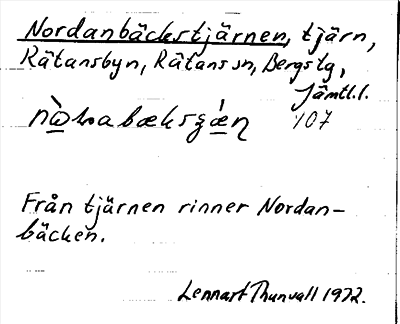 Nordanbäckstjärnen, tjärn,
Rätansbyn, Rätans sn, Bergs tg,
Jämtl.l.
107
Från tjärnen rinner Nordan-
bäcken.
Lennart Thunvall 1972.